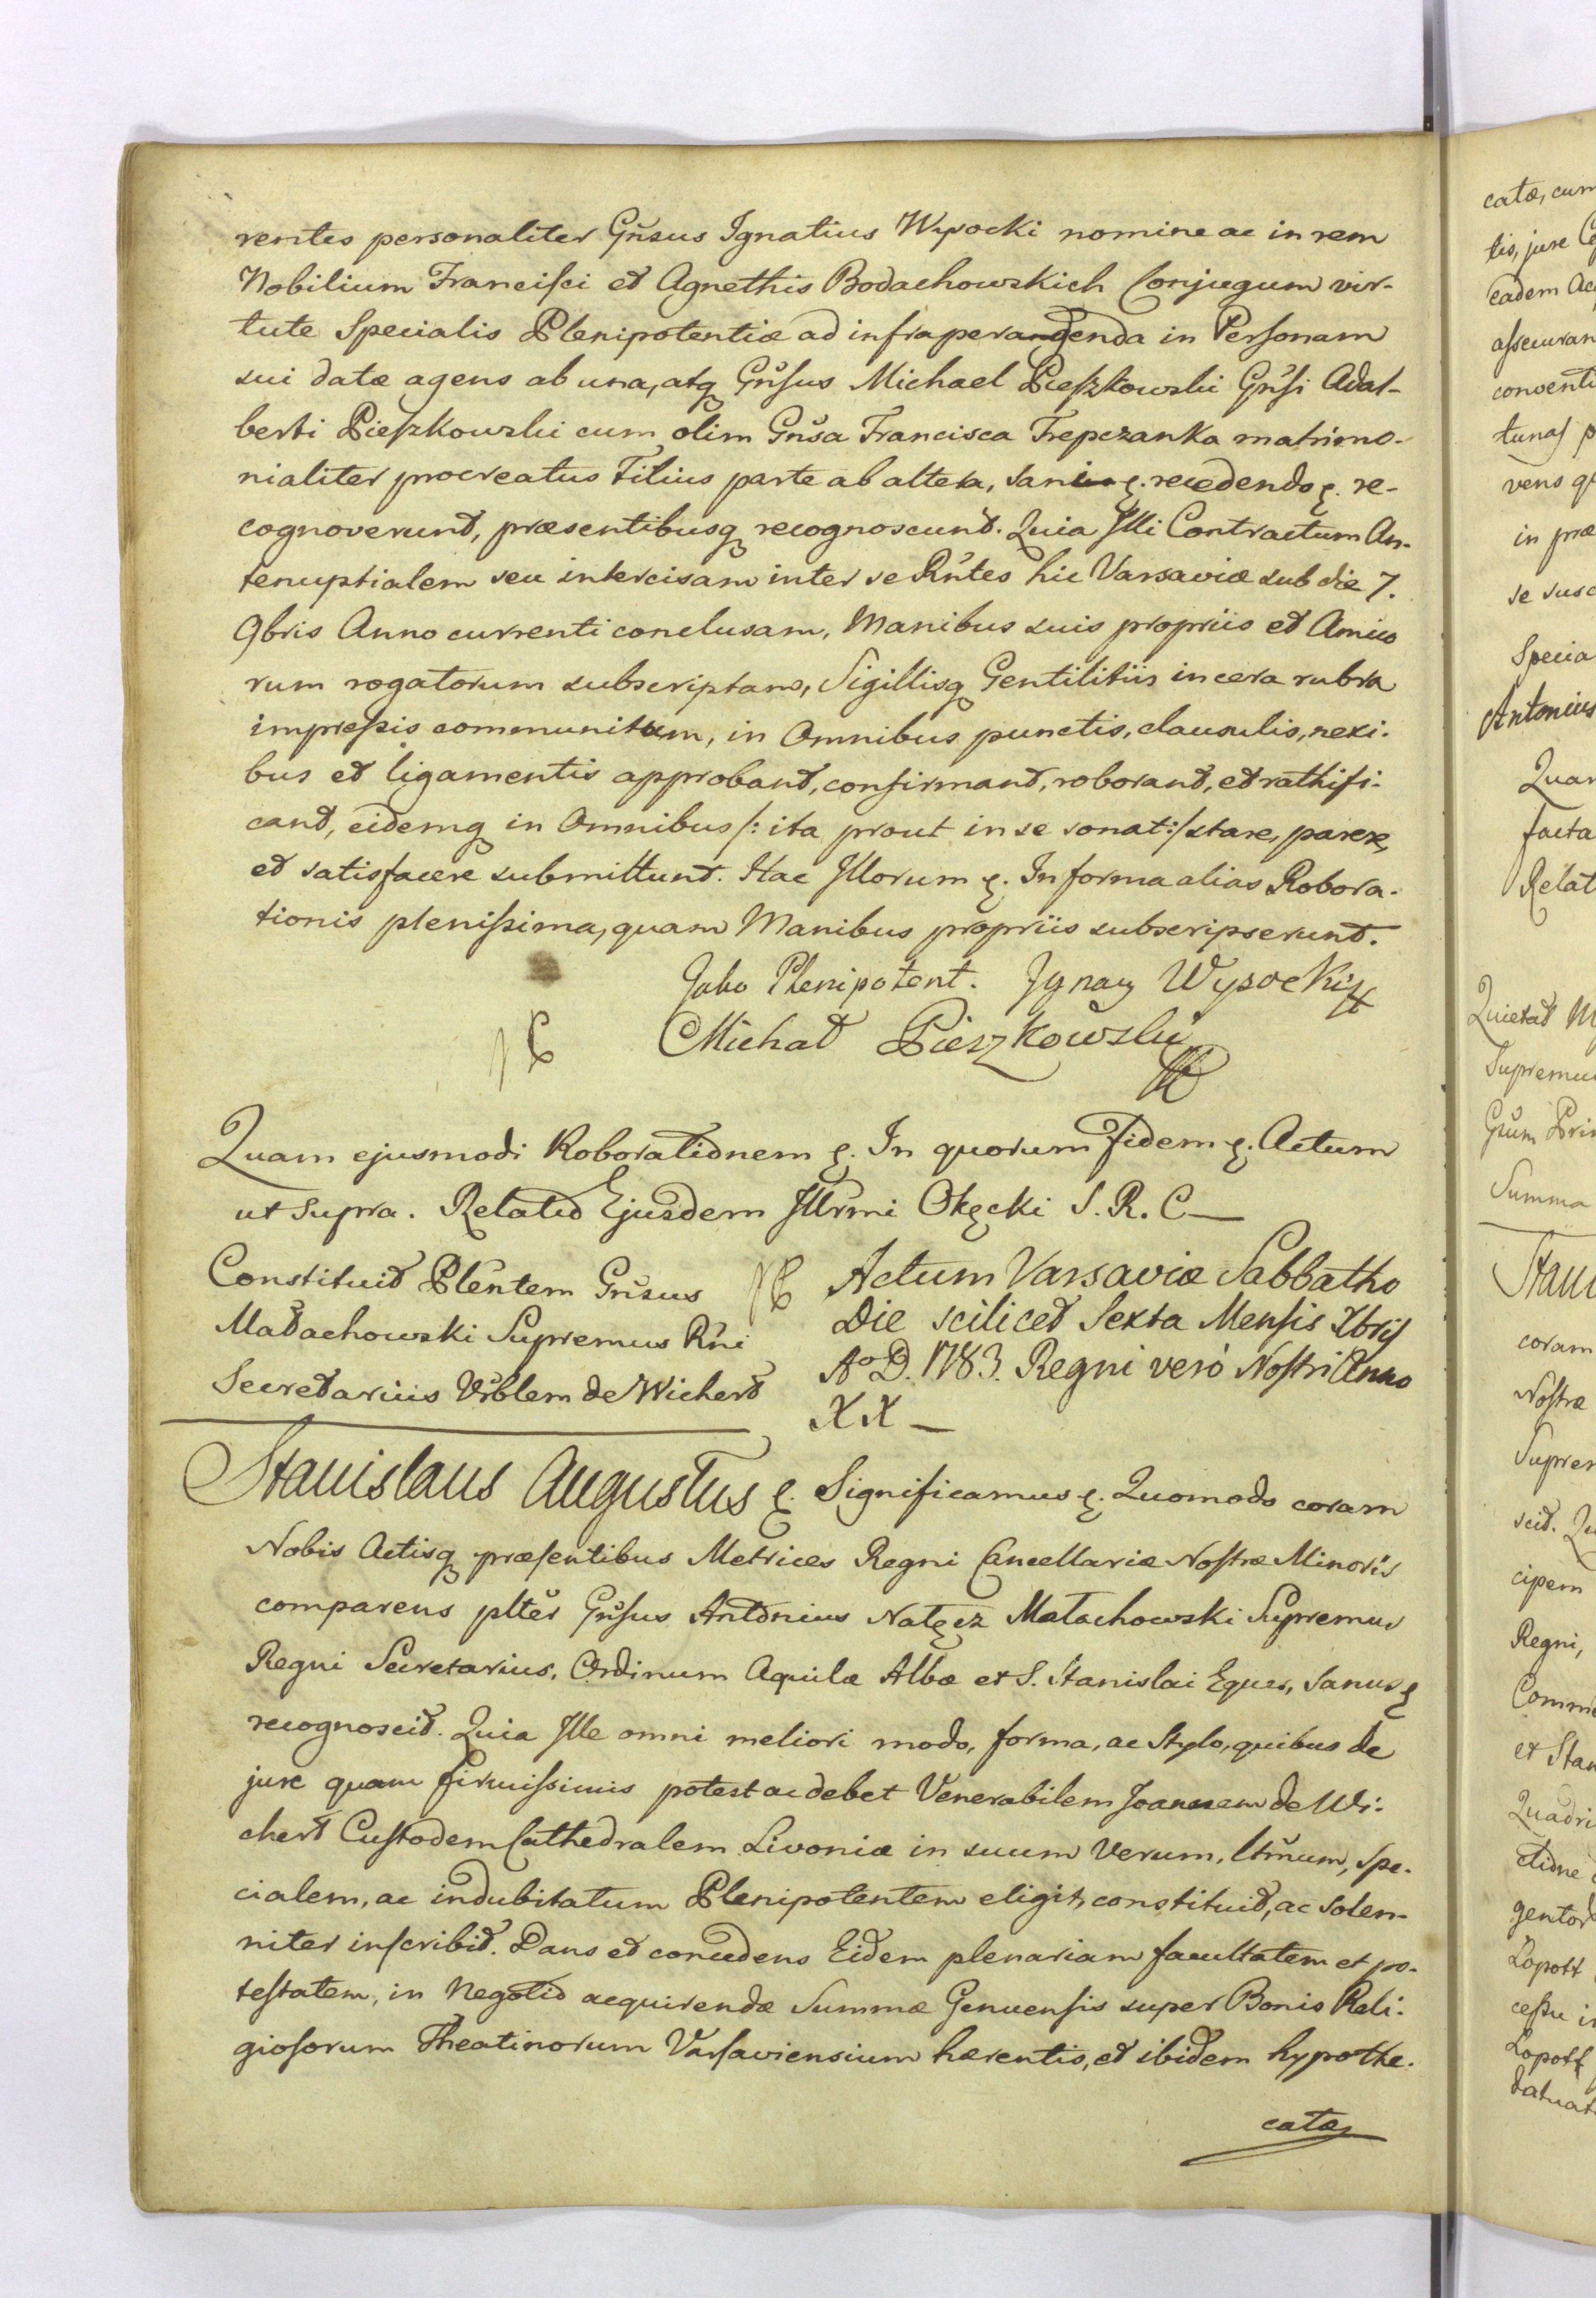 rentes personaliter Gñsus Ignatius Wysocki nomine ac in rem
Nobilium Francisci et Agnethis Bodachowskich Conjugum vir-
tute Specialis Plenipotentiæ ad infra peragenda in Personam
sui datæ agens ab una, atq Gñsus Michael Pieszkowski Gñsi Adal-
berti Pieszkowski cum olim Gñsa Francisca Trepczanka matrimo-
nialiter procreatus Filius parte ab altera, sani recedendo re-
cognoverunt, præsentibusq recognoscunt. Quia Illi Contractum An-
tenuptialem seu intercisam inter se Rñtes hic Varsaviæ sub die 7.
9bris Anno currenti conclusam, Manibus suis propriis et Amico
rum rogatorum subscriptam, Sigillisq Gentilitiis in cera rubra
impressis communitam, in Omnibus punctis, clausulis, nexi-
bus et ligamentis approbant, confirmant, roborant, et rathifi-
cant, eidemq in Omnibus /: ita prout in se sonat :/ stare, parere,
et satisfacere submittunt. Hac Illorum In forma alias Robora-
tionis plenissima, quam Manibus propriis subscripserunt.
Jako Plenipotent. Ignacy Wysocki
Michał Pieszkowski
Quam ejusmodi Roborationem In quorum Fidem Actum
ut supra. Relatio Ejusdem Illrmi Okęcki S. R. C —
Constituit Plentem Gñsus
Małachowski Supremus Rñi
Secretarius Vrblem de Wichert
Actum Varsaviæ Sabbatho
Die scilicet Sexta Mensis Xbris
Aº D. 1783. Regni verò Nostri Anno
XX —
Stanislaus Augustus Significamus Quomodo coram
Nobis Actisq præsentibus Metrices Regni Cancellariæ Nostræ Minoris
comparens plter Gñsus Antonius Nałęcz Małachowski Supremus
Regni Secretarius, Ordinum Aquilæ Albæ et S. Stanislai Eques, sanus
recognoscit. Quia Ille omni meliori modo, forma, ac Stylo, quibus de
jure quam firmissimis potest ac debet Venerabilem Joannem de Wi-
chert Custodem Cathedralem Livoniæ in suum Verum, ltmum, Spe-
cialem, ac indubitatum Plenipotentem eligit, constituit, ac solen-
niter inscribit. Dans et concedens Eidem plenariam facultatem et po-
testatem, in Negotio acquirendæ Summæ Genuensis super Bonis Reli-
giosorum Theatinorum Varsaviensium hærentis, et ibidem hypothe-
catæ,
catæ, cum
tis, jure
eadem
in præ
Specia
Antonius
Quam
facta
Relat
Quietat
Supremus
Summa
coram
Nostræ
cipem
Regni,
et Stan